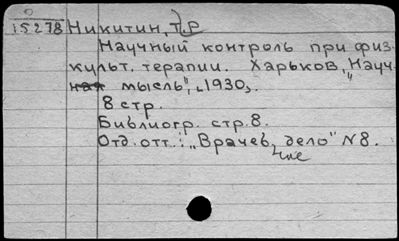 15278 Никитин, т. р
Научный контроль при физ-
культ. терапии. Харьков, "Науч-
ная мысль", 1930.
8 стр.
Библиогр. стр. 8.
Отд. отт.: "Врачеб, дело" N8.
ное